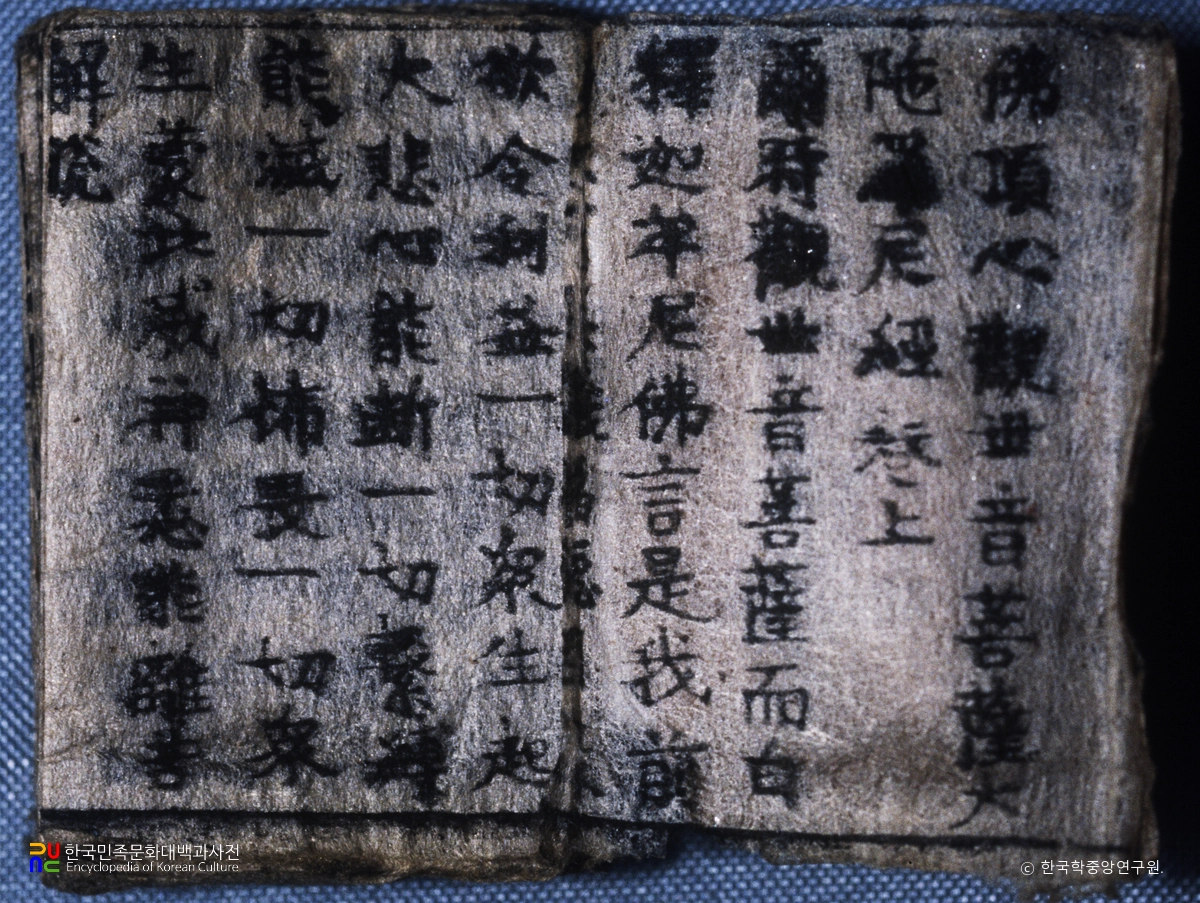 佛頂心觀世音菩薩大
陁羅尼經卷上
爾時觀世音菩薩而白
釋迦牟尼佛言是我前
欲令利益一切衆生起
大悲心能斷一切繫縛
能滅一切怖畏一切衆
生蒙此威神悉能離苦
解脫
한국민족문화대백과사전
Encyclopedia of Korean Culture
© 한국학중앙연구원.